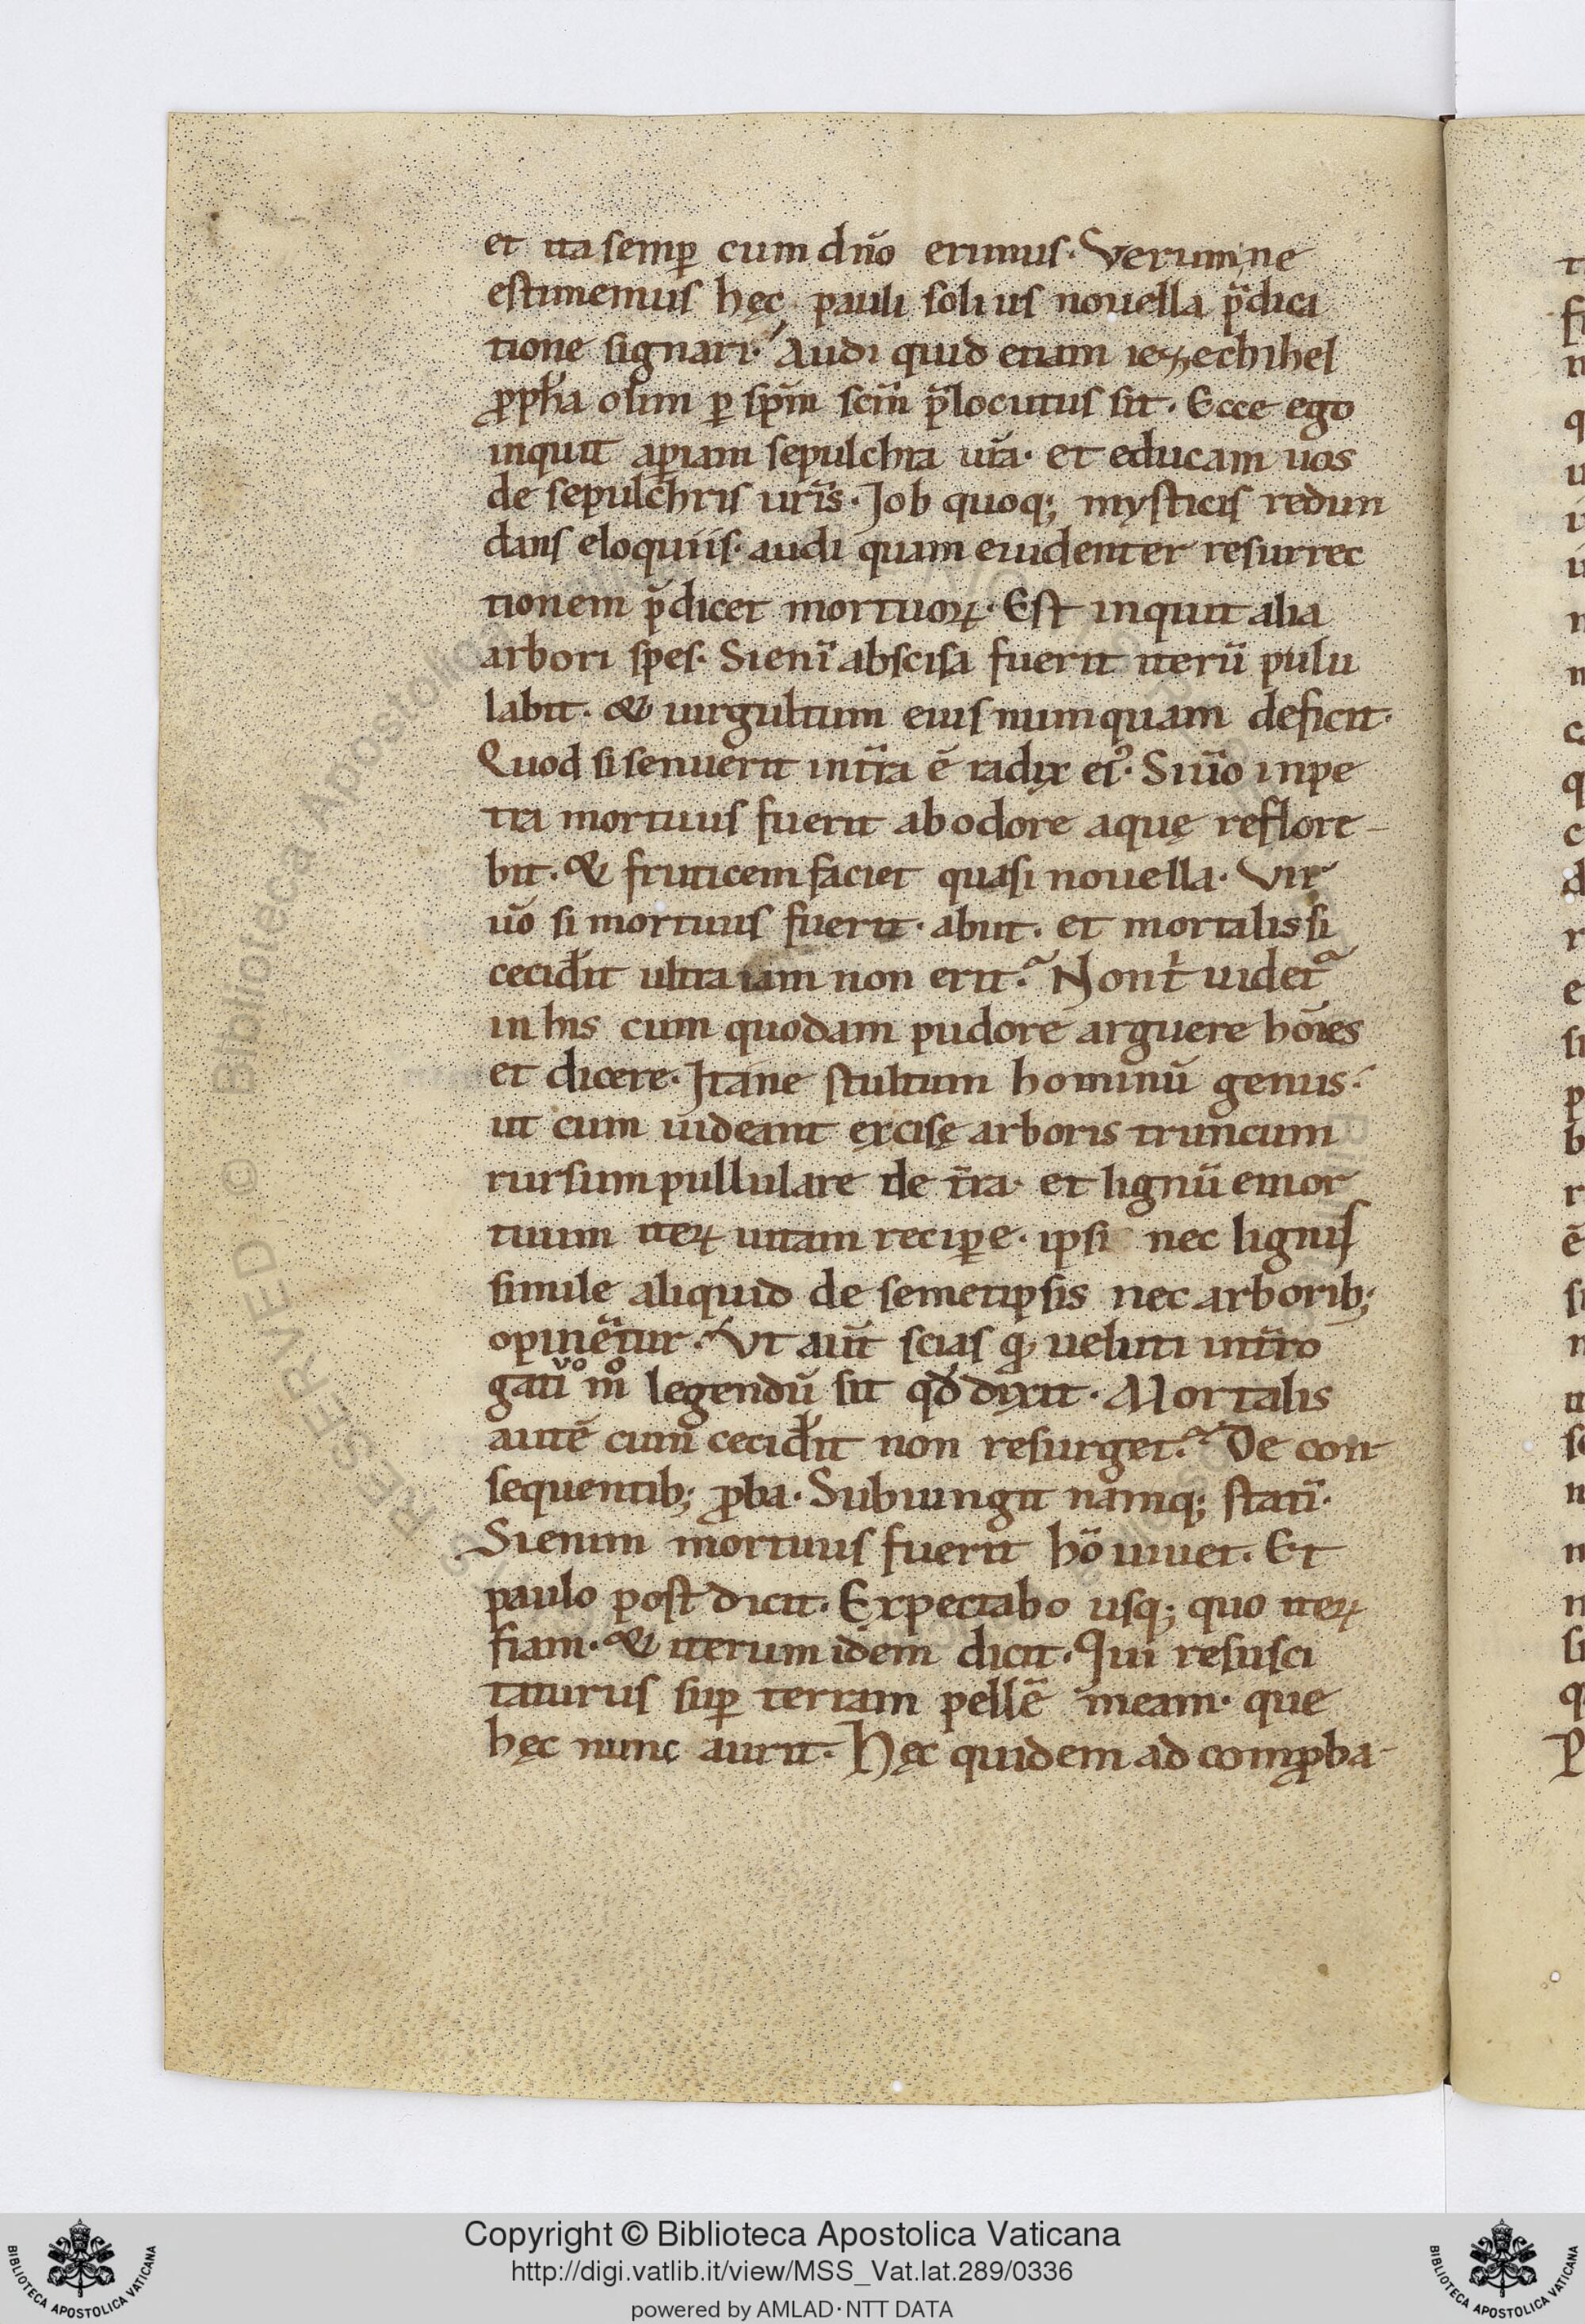 et ita semꝑ cum dn̄o erimus. Verum ne
estimemus hęc pauli solius nouella p̄dica
tione signari. Audi quid etiam iezechihel
ꝓph̄a olim ꝑ sp̄m sc̄m p̄locutus sit. Ecce ego
inquit aꝑiam sepulchra ur̄a. et educam uos
de sepulchris ur̄is. Job quoq; mysticis redun
dans eloquiis. audi quam euidenter resurrec
tionem p̄dicet mortuoꝝ. Est inquit alia
arbori spes. Si eni̅ abscisa fuerit iterū pulu
labit. & uirgultum eius numquam deficit.
Quod si senuerit in t̄ra ē radix ei᾿. Si ū̄o in pe
tra mortuus fuerit ab odore aquę reflore-
bit. & fruticem faciet quasi nouella. Vir
ūo si mortuus fuerit. abiit. et mortalis si
cecid̄it ultra iam non erit. Nonṫ uidet᷑
in his cum quodam pudore arguere ho̅ies
et dicere. Itane stultum hominū genus.
ut cum uideant excisę arboris truncum
rursum pullulare de t̄ra. et lignū emor
tuum iteꝝ uitam reciꝑe. ipsi nec lignis
simile aliquid de semetipsis nec arborib;
opinētur. Vt aut̄ scias ꝙ ueluti int̄ro
gati uo mo legendū sit qđ dixit. Mortalis
autē cum cecid̄it non resurget. De con
sequentib; ꝓba. Subiungit namq; stati̅.
Si enim mortuus fuerit hō uiuet. Et
paulo post dicit. Expectabo usq; quo iteꝝ
fiam. & iterum idem dicit. Qui resusci
taturus suꝑ terram pellē meam. que
hęc nunc aurit. Hęc quidem ad comꝓba-
Copyright © Biblioteca Apostolica Vaticana
http://digi.vatlib.it/view/MSS_Vat.lat.289/0336
powered by AMLAD·NTT DATA